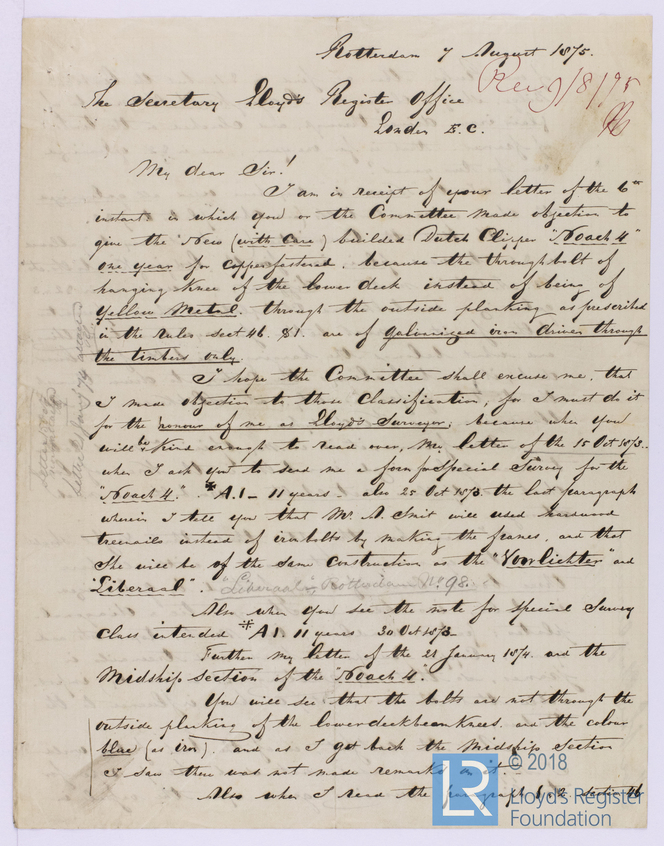 Rotterdam 7 August 1875.
Rec 9/8/75
The Secretary Lloyd's Register Office
London E.C.
My dear Sir!
I am in receipt of your letter of the 6th
instant in which you or the Committee made objection to
give the New (with care) builded Dutch Clipper "Noach 4"
one year for copperfastered. because the throughbolt of
hanging Knee of the lower deck instead of being of
Yellow Metal. through the outside planking as prescribed
in the rules sect 46. §1. are of galvanized iron driven through
the timbers only.
I hope the Committee shall excuse me, that
I made objection to those Classification, for I must do it
for the honour of me as Lloyd's Surveyor; because when you
will be Kind enough to read over, My letter of the 15 Oct 1873.
when I ask you to send me a form for Special Survey for the
"Noach 4." * A.1 - 11 years - also 25 Oct 1873. the last paragraph
wherein I tell you that Mr. A. Smit will used hardwood
treenails instead of iron bolts by making the frames, and that
She will be of the same Construction as the "Voorlichter" and
"Liberaal". "Liberaal" Rotterdam No 98.
Also when you see the note for special Survey
class intended * A1. 11 years 30 Oct 1873
Further my letter of the 21 January 1874. and the
Midship section of the "Noach 4".
You will see that the bolts are not through the
outside planking of the lowerdeckbeam Knees. and the colour
blue (as iron). and as I got back the Midship Section
I saw there was not made remarks on it.
Also when I read the paragraph 1 & 2 section 46
© 2018
LR
Lloyd's Register
Foundation